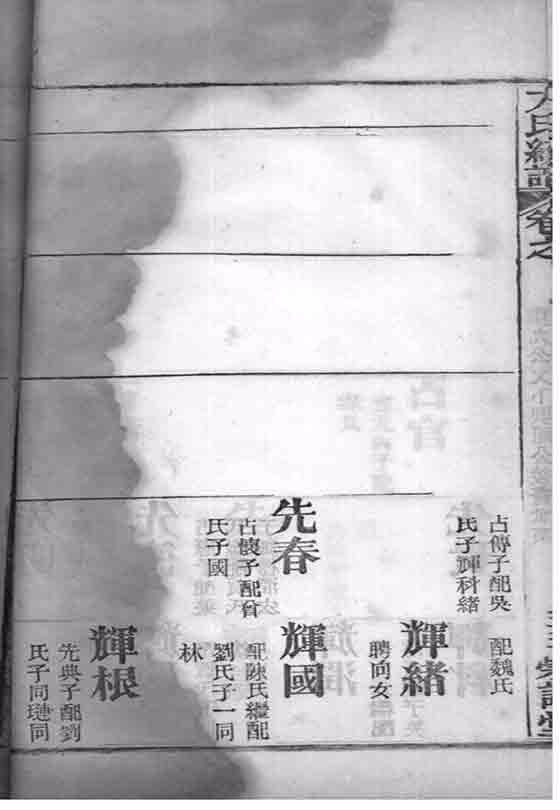 卷之
占傳子配吳
氏子輝科緒
先春
占懷子配曾
氏子國
配魏氏
輝緒
聘向女
輝國
配陳氏繼配
劉氏子一同
林
輝根
先典子配劉
氏子同璉同